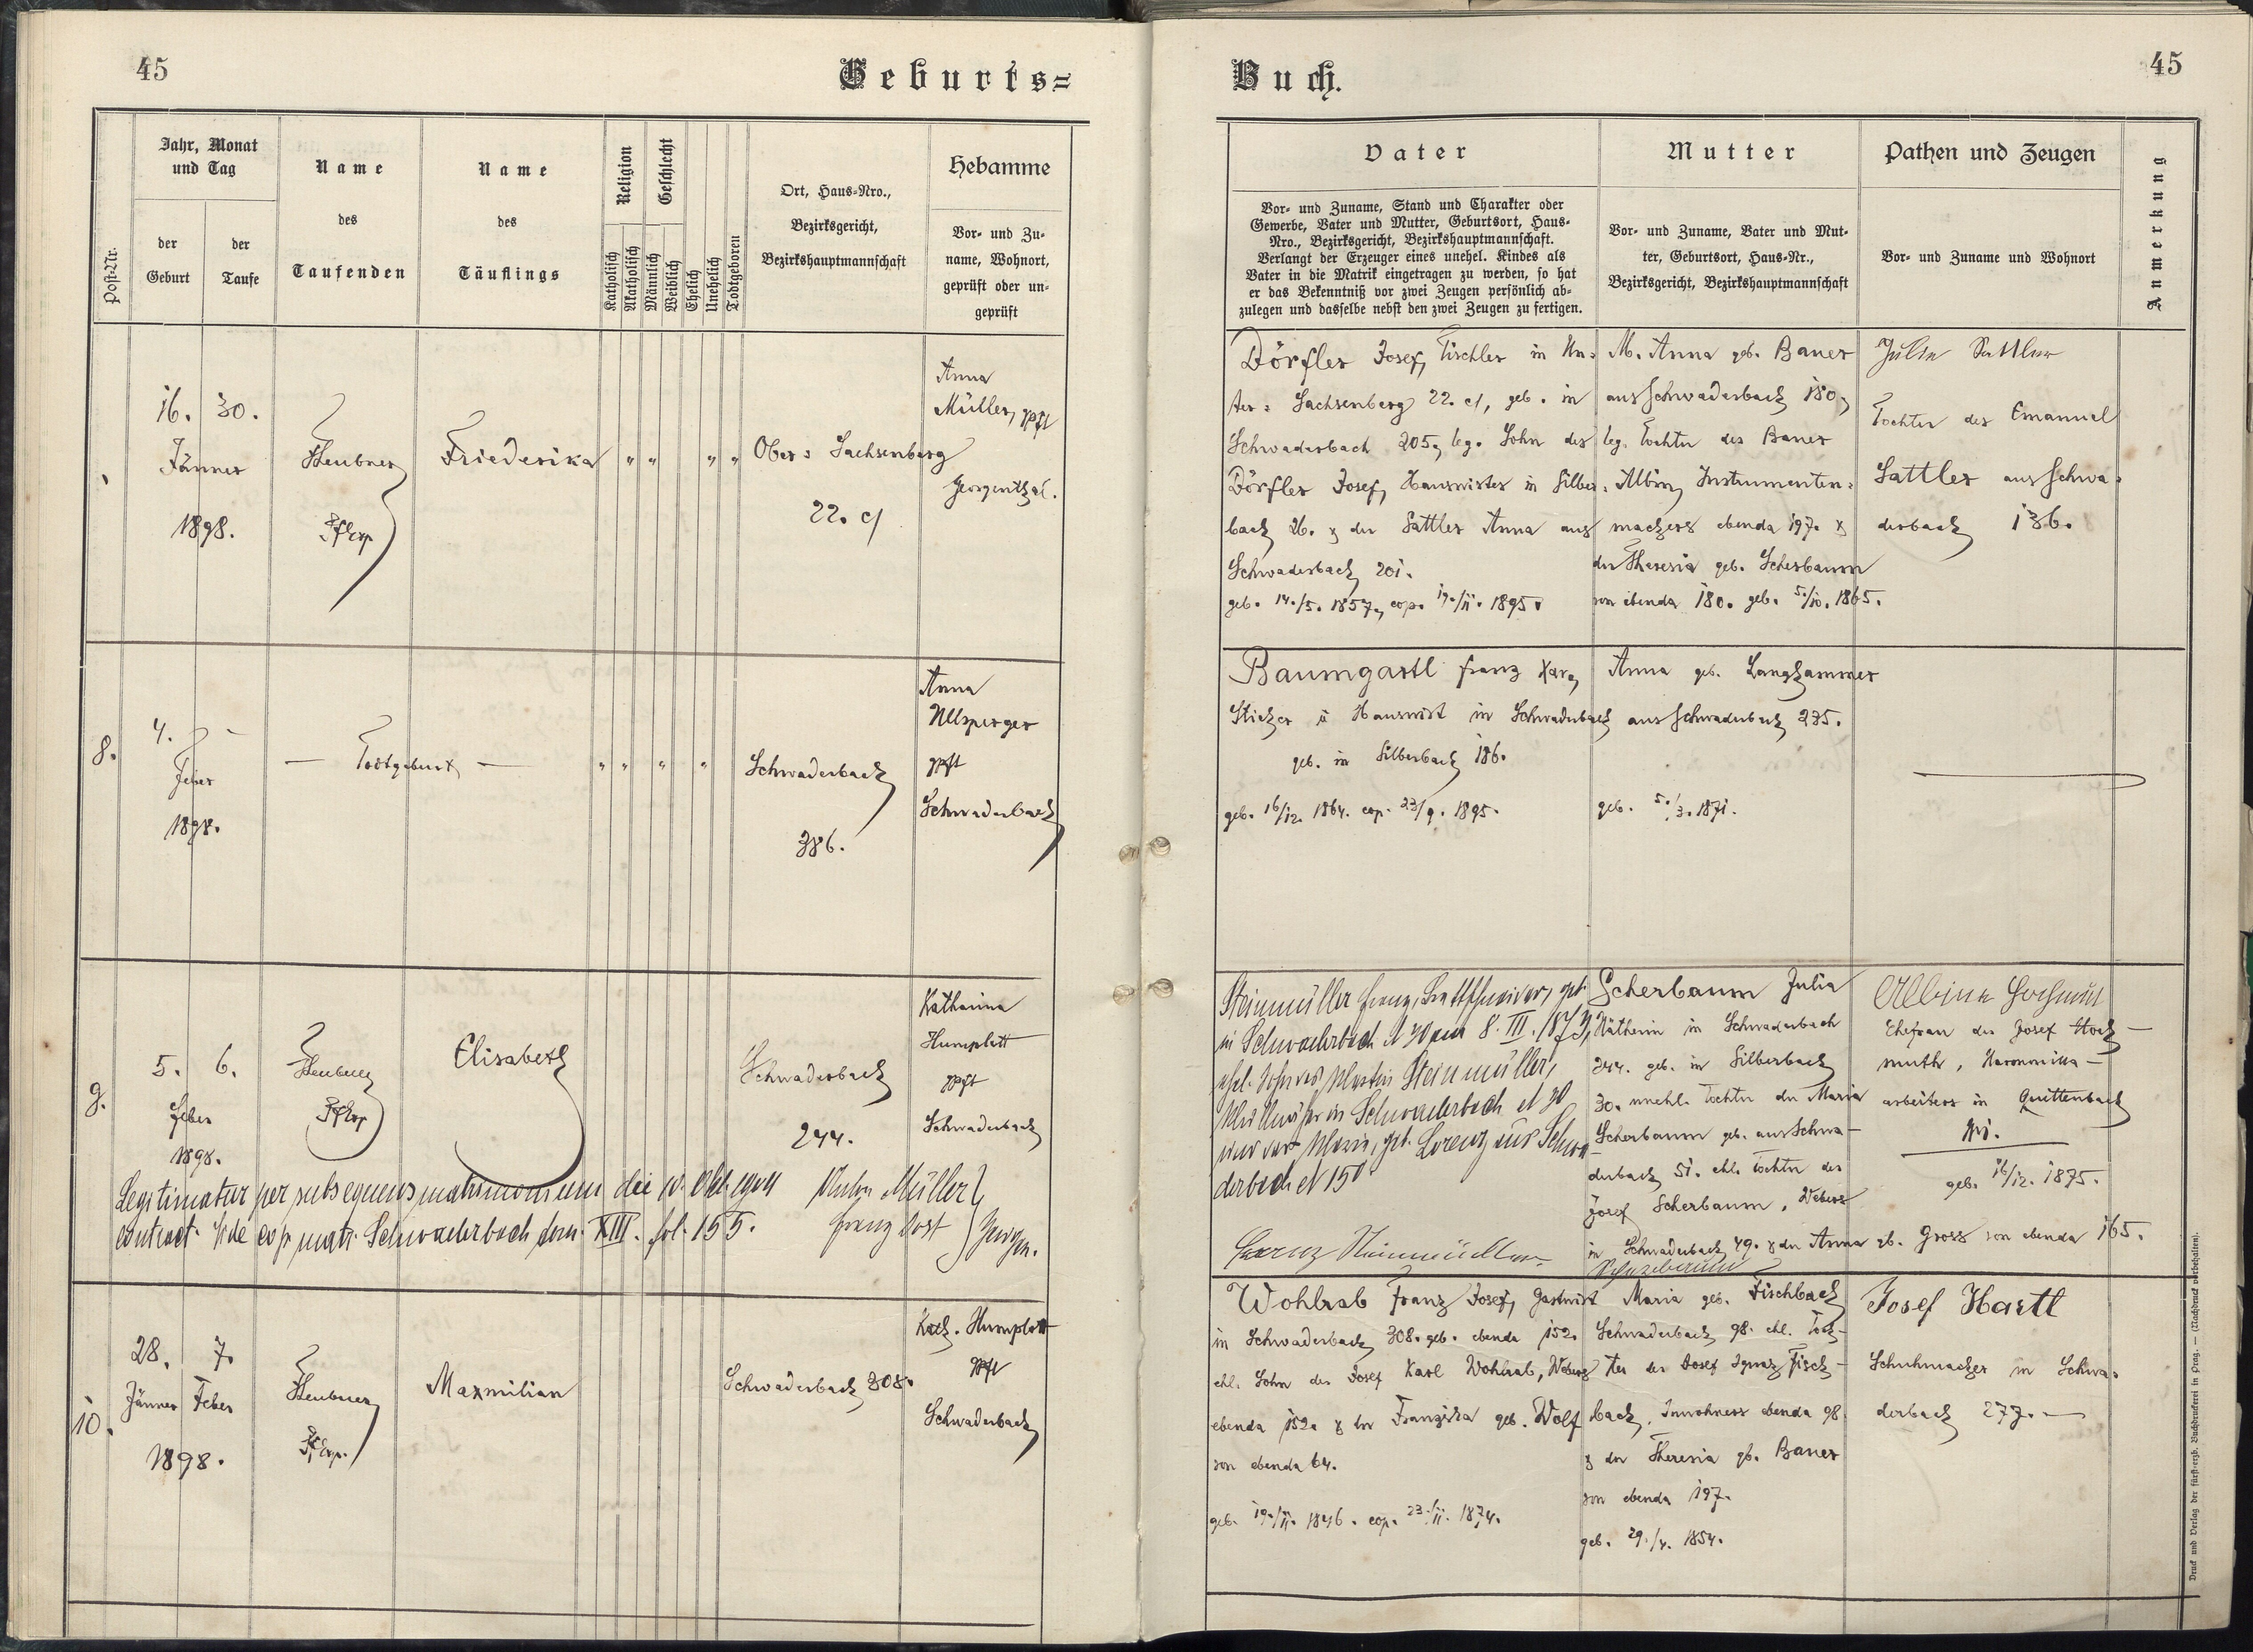 45
Geburts=
Post-Nr.
Jahr, Monat
und Tag
der
Geburt
der
Taufe
Name
des
Taufenden
Name
des
Täuflings
Religion
Katholisch
Akatholisch
Geschlecht
Männlich
Weiblich
Ehelich
Unehelich
Todtgeboren
Ort, Haus-Nro.,
Bezirksgericht,
Bezirkshauptmannschaft
Hebamme
Vor- und Zu-
name, Wohnort,
geprüft oder un-
geprüft
16. 30.
Jänner
1898.
Heubner
PfExp
Friederika
" " " "
Ober = Sachsenberg
22. c/
Anna
Müller, gpft
Georgenthal.
8.
4. -
Feber
1898.
— Todtgeburt —
" " " "
Schwaderbach
386.
Anna
Ullsperger
gpft
Schwaderbach
9.
5. 6.
Feber
1898.
Heubner
PfExp
Elisabeth
Schwaderbach
244.
Katharina
Humplott
gpft
Schwaderbach
Legitimatur per subsequens matrimonium die
contract. Vide cop. matr. Schwaderbach tom. XIII. fol. 155.
Müller
Franz Zeugen.
10.
28. 7.
Jänner Feber
1898.
Heubner
PfExp.
Maxmilian
Schwaderbach 308.
Kath. Humplott
gpft
Schwaderbach
Buch.
45
Vater
Vor- und Zuname, Stand und Charakter oder
Gewerbe, Vater und Mutter, Geburtsort, Haus-
Nro., Bezirksgericht, Bezirkshauptmannschaft.
Verlangt der Erzeuger eines unehel. Kindes als
Vater in die Matrik eingetragen zu werden, so hat
er das Bekenntniß vor zwei Zeugen persönlich ab-
zulegen und dasselbe nebst den zwei Zeugen zu fertigen.
Mutter
Vor- und Zuname, Vater und Mut-
ter, Geburtsort, Haus-Nr.,
Bezirksgericht, Bezirkshauptmannschaft
Pathen und Zeugen
Vor- und Zuname und Wohnort
Anmerkung
Dörfler Josef, Tischler in Un=
ter = Sachsenberg 22. c/, geb. in
Schwaderbach 205, leg. Sohn des
Dörfler Josef, Hauswirter in Silber=
bach 26. & der Sattler Anna aus
Schwaderbach 201.
geb. 14./5. 1857, cop. 19./11. 1895.
M. Anna geb. Bauer
aus Schwaderbach 180,
leg. Tochter des Bauer
Albin, Instrumenten=
machers ebenda 197. &
der Theresia geb. Scherbaum
von ebenda 180. geb. 5./10. 1865.
Julie Sattler
Tochter des Emanuel
Sattler aus Schwa=
derbach 136.
Baumgartl Franz Xav,
Sticker u Hauswirt in Schwaderbach
geb. in Silberbach 186.
geb. 16/12. 1864. cop. 23/9. 1895.
Anna geb. Langhammer
aus Schwaderbach 275.
geb. 5./3. 1871.
Steinmüller Franz, geb.
in Schwaderbach N 30 am 8. III. 1873,
ehel. Sohn des Martin Steinmüller,
in Schwaderbach N 30
und der Maria, geb. Lorenz aus Schwa
derbach N 150
Franz Steinmüller
Scherbaum Julia
Nätherin in Schwaderbach
244. geb. in Silberbach
30. unehl. Tochter der Maria
Scherbaum geb. aus Schwa-
derbach 51. ehl. Tochter des
Josef Scherbaum, Webers
in Schwaderbach 49. & der Anna gb. Gross von ebenda 165.
Albina Hochmut
Ehefrau des Josef Hoch-
muth, Harmonika-
arbeiters in Quittenbach
geb. 16/12. 1875.
Wohlrab Franz Josef, Gastwirt
in Schwaderbach 308. geb. ebenda 152.
ehl. Sohn des Josef Karl Wohlrab, Webers
ebenda 152. & der Franziska geb. Wolf
von ebenda 64.
geb. 19./11. 1846. cop. 23./11. 1874.
Maria geb. Fischbach
Schwaderbach 98. ehl. Toch-
ter des Josef Ignaz Fisch-
bach, Inwohners ebenda 98.
& der Theresia gb. Bauer
von ebenda 197.
geb. 29./4. 1854.
Josef Hartl
Schuhmacher in Schwa=
derbach 277. —
Druck und Verlag der fürst-erzb. Buchdruckerei in Prag. — (Nachdruck vorbehalten).